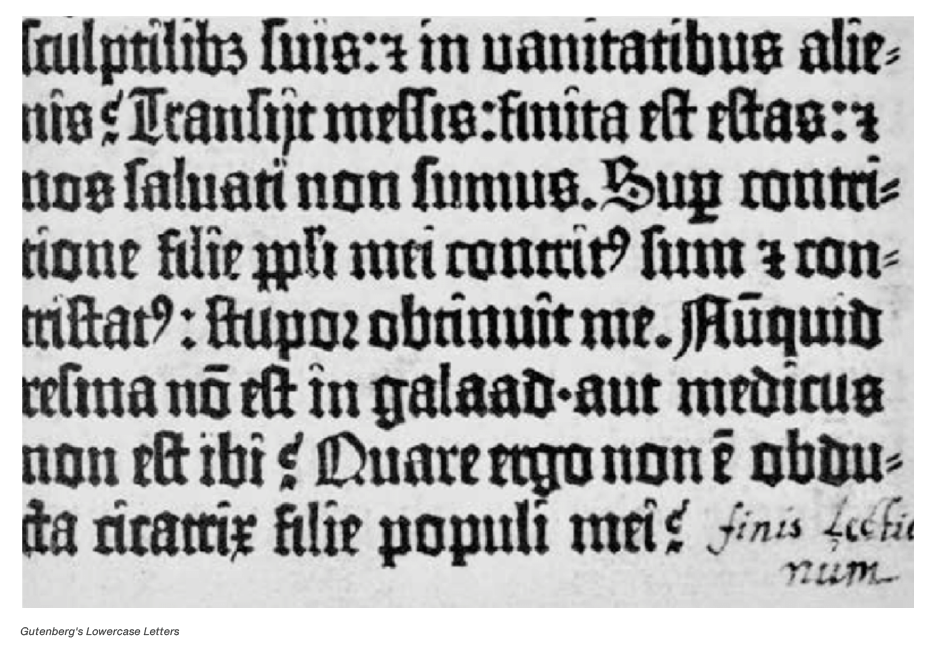 sculptilibꝫ suis:⁊ in uanitatibus alie⸗
nis? Transijt messis:finita est estas:⁊
nos saluati non sumus. Sup̱ contri⸗
tione filie ppl̓i mei contritꝰ sum ⁊ con⸗
tristatꝰ: stupor obtinuit me. Nūquid
resina nō est in galaad·aut medicus
non est ibi? Quare ergo non ē obdu⸗
cta cicatrix filie populi mei?
finis Lectio
num
Gutenberg's Lowercase Letters